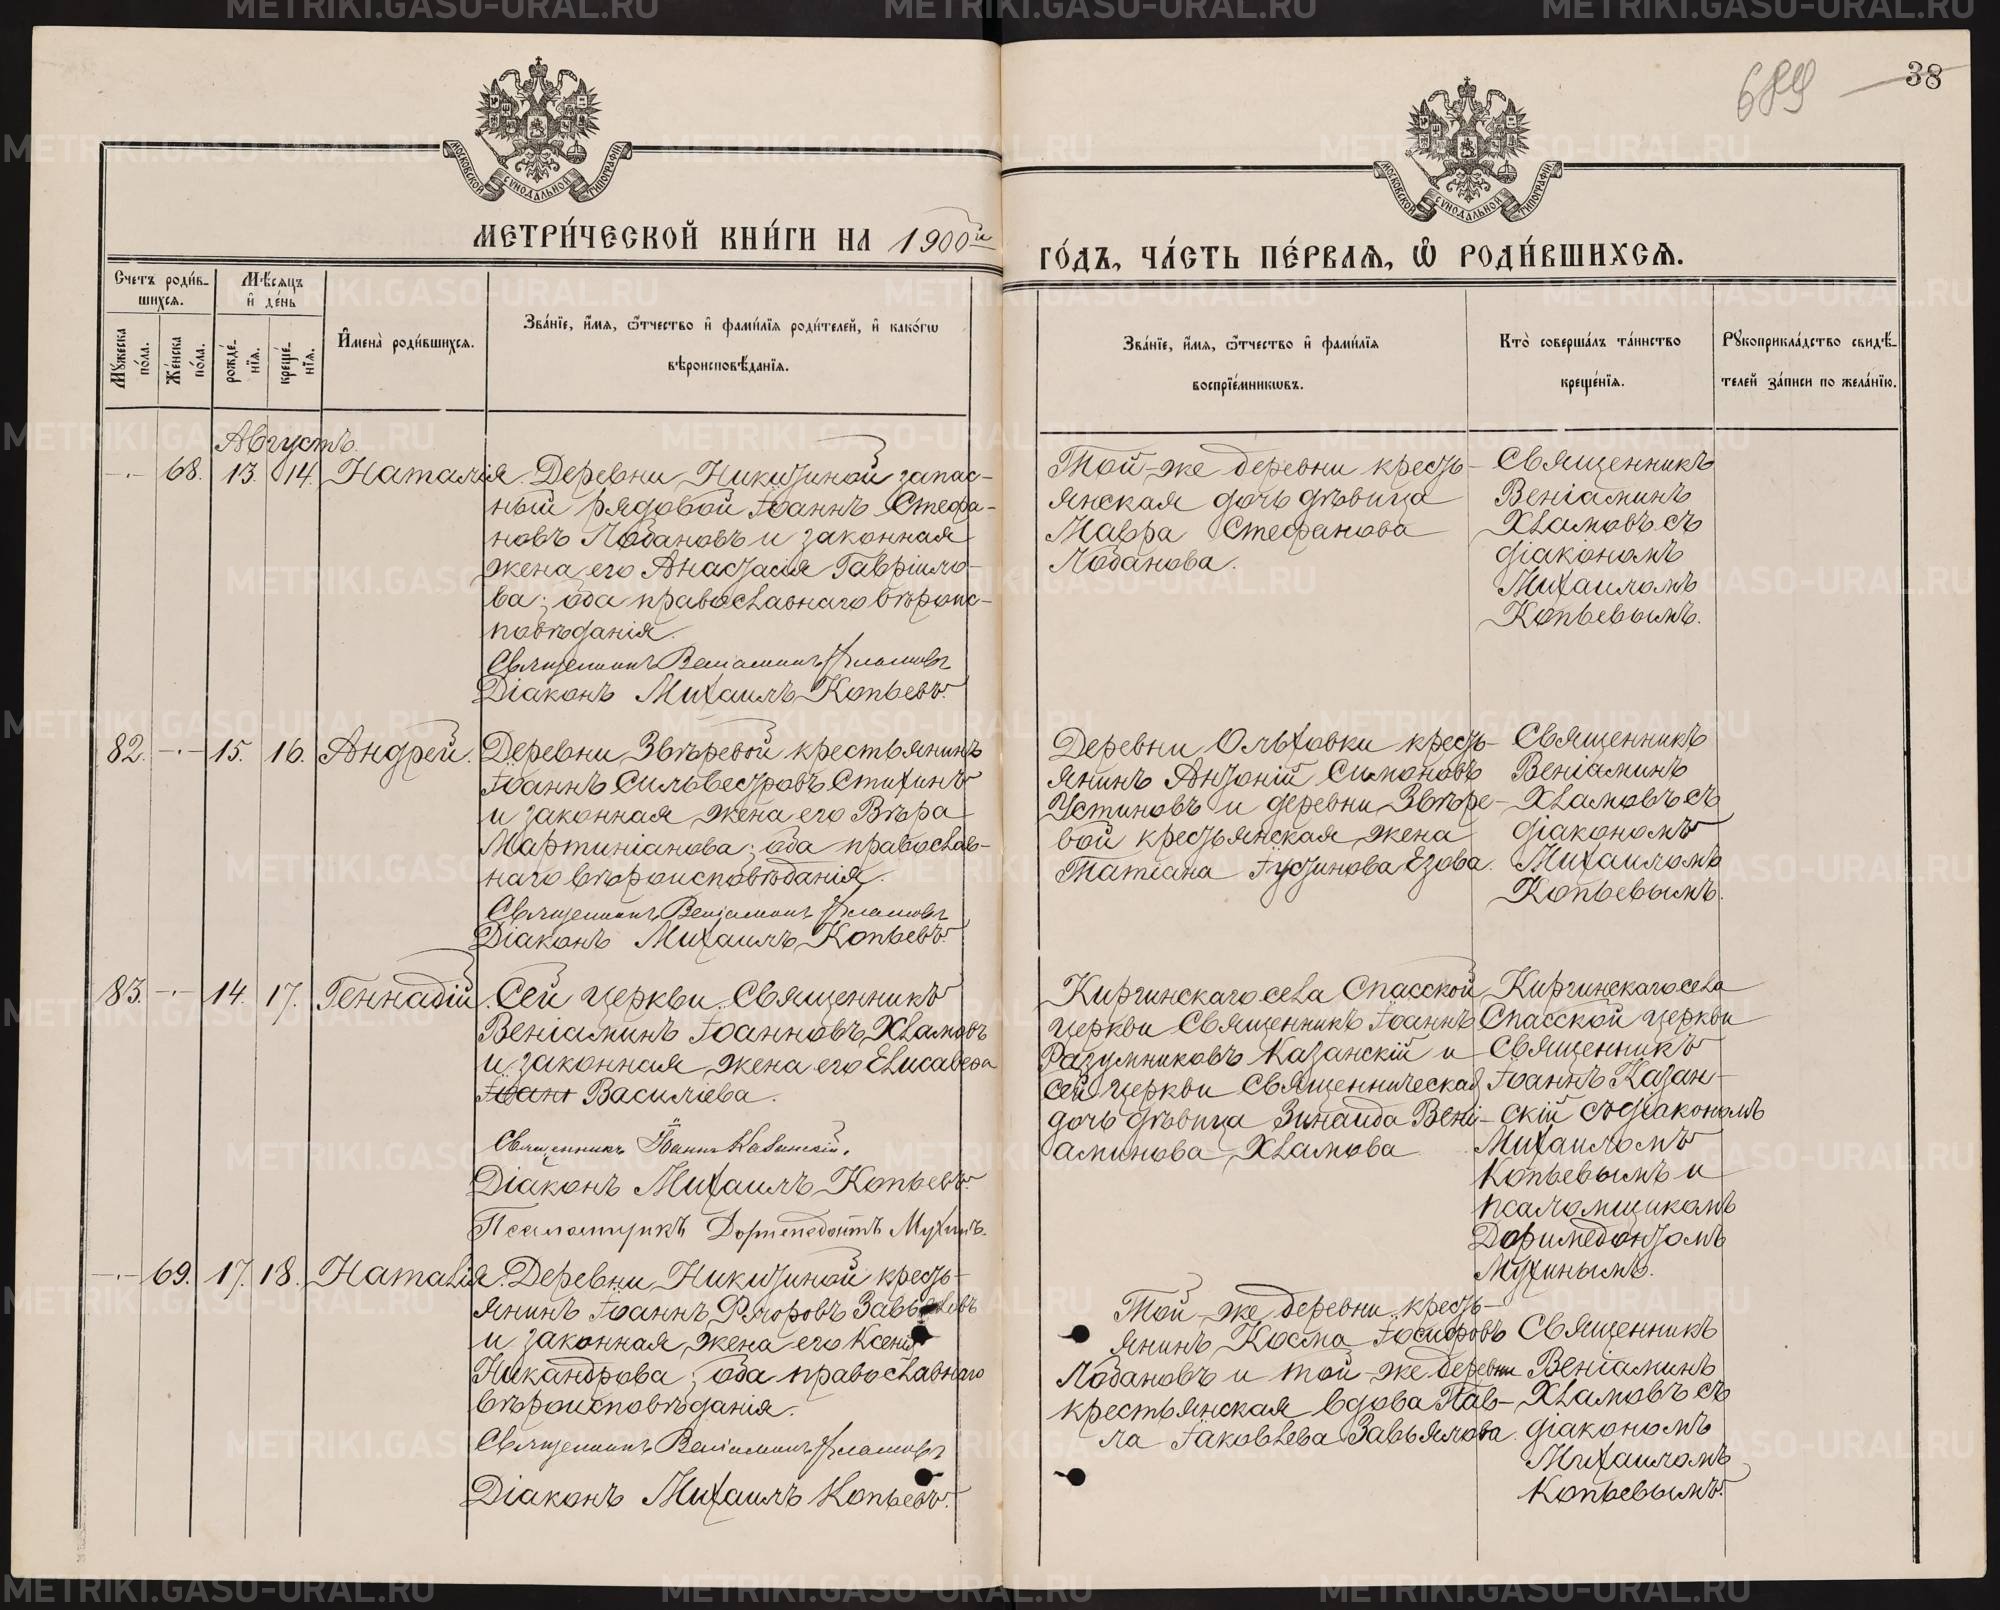 689 38
МОСКОВСКОЙ СУНОДАЛЬНОЙ ТИПОГРАФІИ
МОСКОВСКОЙ СУНОДАЛЬНОЙ ТИПОГРАФІИ
МЕТРИ́ЧЕСКОЙ КНИ́ГИ НА 1900й
ГО́ДЪ, ЧА́СТЬ ПЕ́РВАѦ, Ѡ РОДИ́ВШИХСѦ.
Счетъ роди́в-
шихсѧ.
Мѣ́сѧцъ
и де́нь
Мꙋжеска
по́ла.
Же́нска
по́ла.
рожде́-
нїѧ.
креще́-
нїѧ.
Имена̀ роди́вшихсѧ.
Зва́нїе, и́мѧ, ѻ́тчество и фами́лїѧ роди́телей, и како́гѡ
вѣроисповѣ́данїѧ.
Зва́нїе, и́мѧ, ѻ́тчество и фами́лїѧ
воспрїе́мникѡвъ.
Кто̀ соверша́лъ та́инство
креще́нїѧ.
Рꙋкоприкла́дство свидѣ́-
телей за́писи по жела́нїю.
Августъ.
—·— 68. 13. 14. Наталія. Деревни Никитиной запас-
ный рядовой Іоаннъ Стефа-
новъ Лобановъ и законная
жена его Анастасія Гавріило-
ва; оба православнаго вѣроис-
повѣданія.
Священникъ Веніаминъ Хламовъ
Діаконъ Михаилъ Копьевъ.
Той-же деревни кресть-
янская дочь дѣвица
Мавра Стефанова
Лобанова.
Священникъ
Веніаминъ
Хламовъ съ
діакономъ
Михаиломъ
Копьевымъ.
82. —·— 15. 16. Андрей. Деревни Звѣревой крестьянинъ
Іоаннъ Сильвестровъ Стихинъ
и законная жена его Вѣра
Мартиніанова; оба православ-
наго вѣроисповѣданія.
Священникъ Веніаминъ Хламовъ
Діаконъ Михаилъ Копьевъ.
Деревни Ольховки кресть-
янинъ Антоній Симоновъ
Устиновъ и деревни Звѣре-
вой крестьянская жена
Татіана Іустинова Езова.
Священникъ
Веніаминъ
Хламовъ съ
діакономъ
Михаиломъ
Копьевымъ.
83. —·— 14. 17. Геннадій. Сей церкви Священникъ
Веніаминъ Іоанновъ Хламовъ
и законная жена его Елисавета
Іоанн Василіева.
Священникъ Іоаннъ Казанскій.
Діаконъ Михаилъ Копьевъ.
Псаломщикъ Доримедонтъ Мухинъ.
Киргинскаго села Спасской
церкви Священникъ Іоаннъ
Разумниковъ Казанскій и
сей церкви Священническая
дочь дѣвица Зинаида Вені-
аминова Хламова
Киргинскаго села
Спасской церкви
Священникъ
Іоаннъ Казан-
скій съ діакономъ
Михаиломъ
Копьевымъ и
псаломщикомъ
Доримедонтомъ
Мухинымъ.
—·— 69. 17. 18. Наталія. Деревни Никитиной кресть-
янинъ Іоаннъ Ѳедоровъ Завьяловъ
и законная жена его Ксенія
Никандрова; оба православнаго
вѣроисповѣданія.
Священникъ Веніаминъ Хламовъ
Діаконъ Михаилъ Копьевъ.
Той-же деревни кресть-
янинъ Косма Іосифовъ
Лобановъ и той-же деревни
крестьянская вдова Пав-
ла Іаковлева Завьялова.
Священникъ
Веніаминъ
Хламовъ съ
діакономъ
Михаиломъ
Копьевымъ.
METRIKI.GASO-URAL.RU